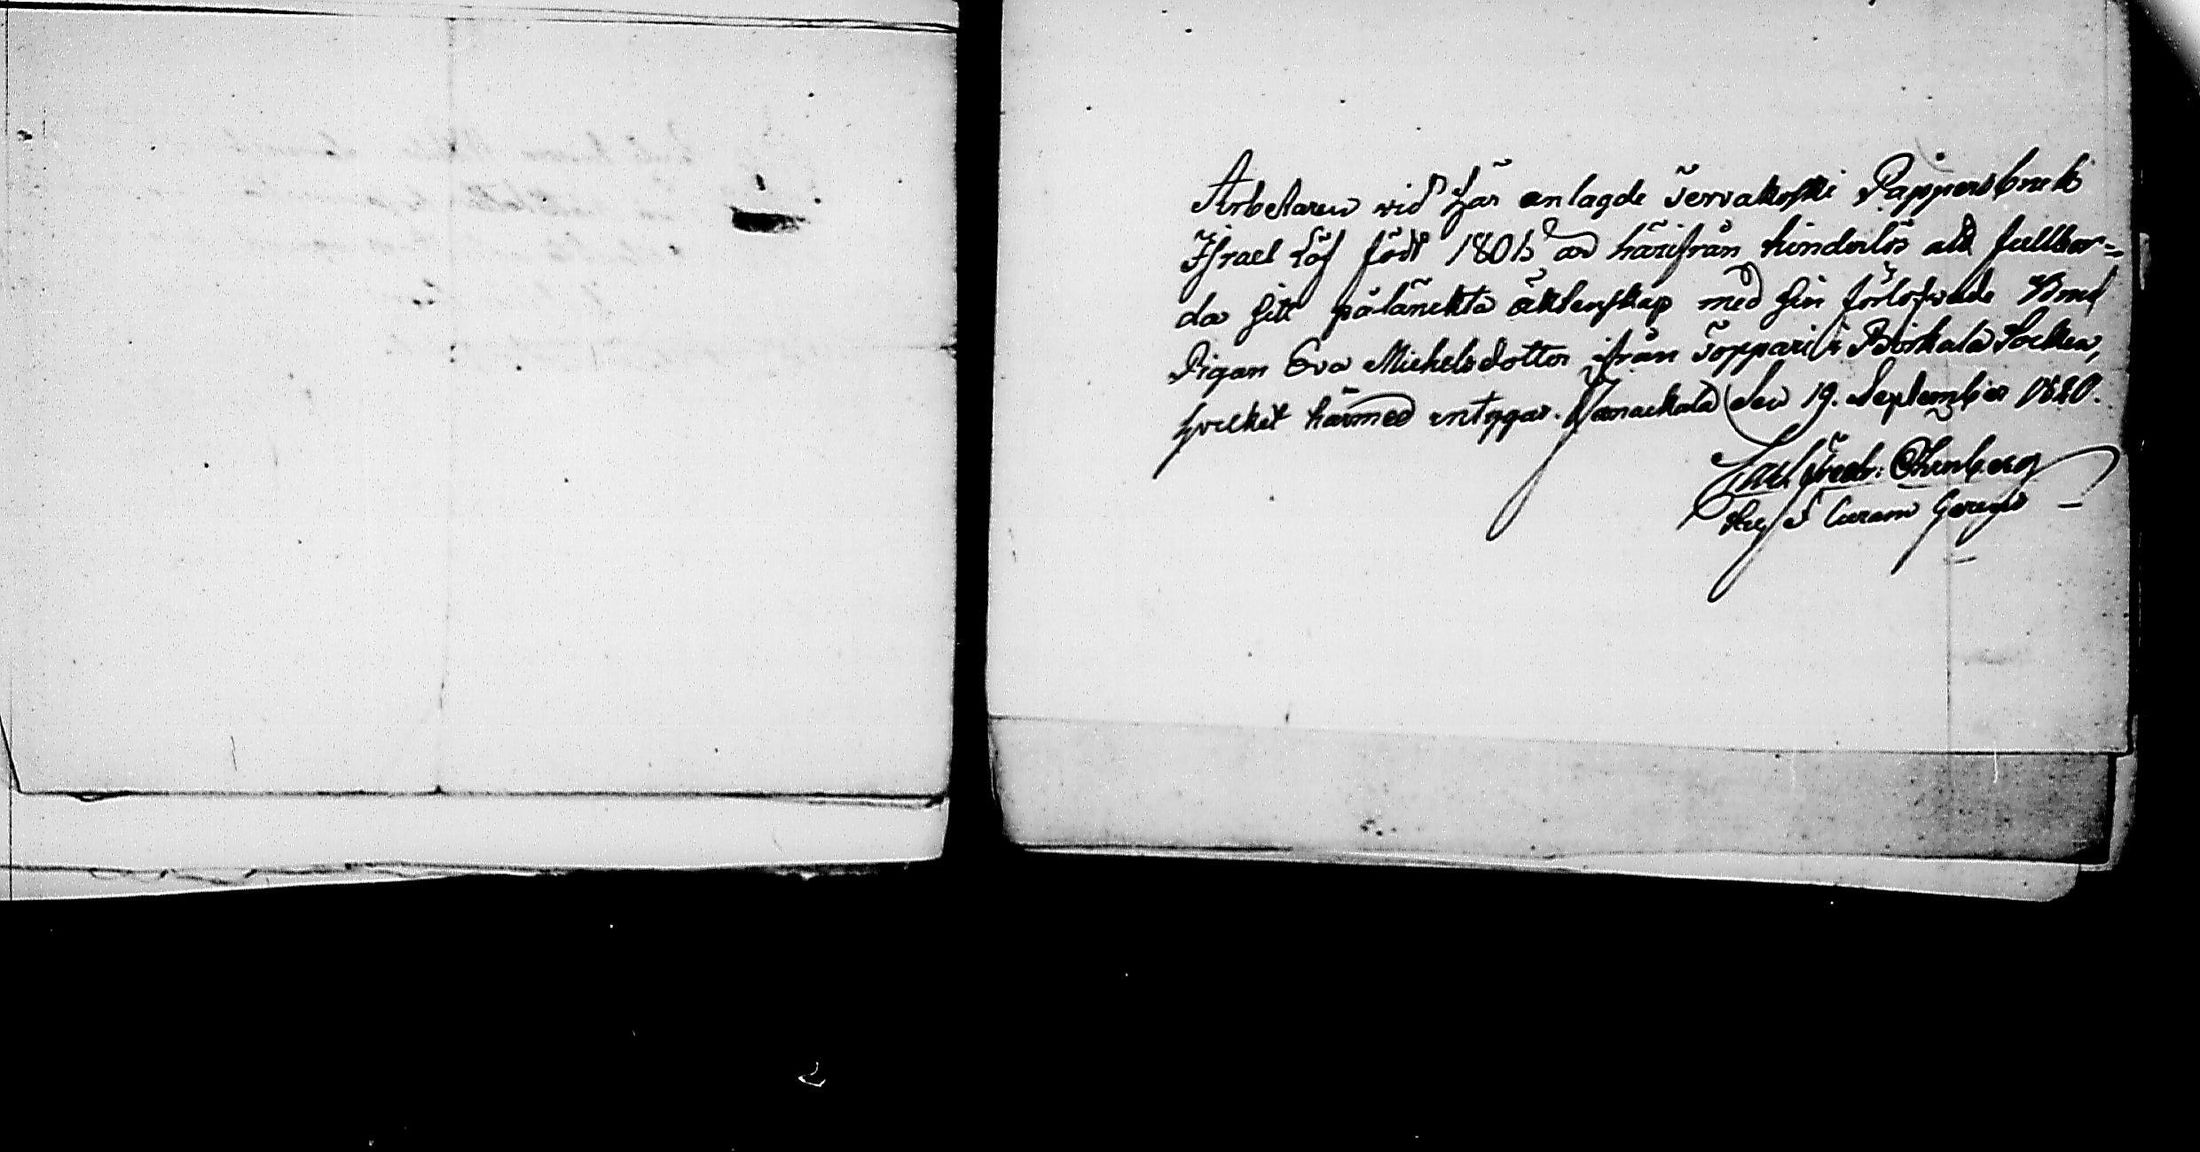 Arbetaren wid här anlagde Tervakoski Pappersbruk
Israel Löf född 1801 är härifrån hinderlös att fullbor=
da sitt påtänckta äktenskap med sin förlofwade Brud
Pigan Eva Michelsdotter ifrån Toppari i Birkala Socken,
hvilket härmed intygar. Janackala den 19. September 1820.
Carl Fredr:
Curam Gerens